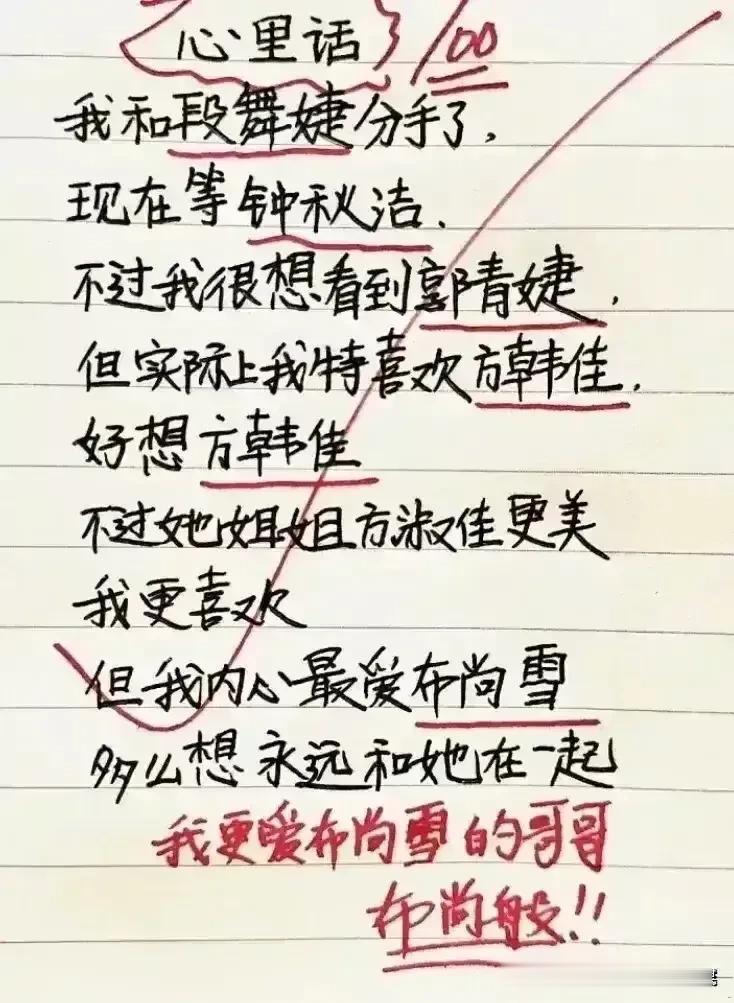 心里话 100
我和段舞婕分手了,
现在等钟秋洁.
不过我很想看到郭青婕,
但实际上我特喜欢方韩佳,
好想方韩佳
不过她姐姐方淑佳更美
我更喜欢
但我内心最爱布尚雪
多么想永远和她在一起
我更爱布尚雪的哥哥
布尚般!!